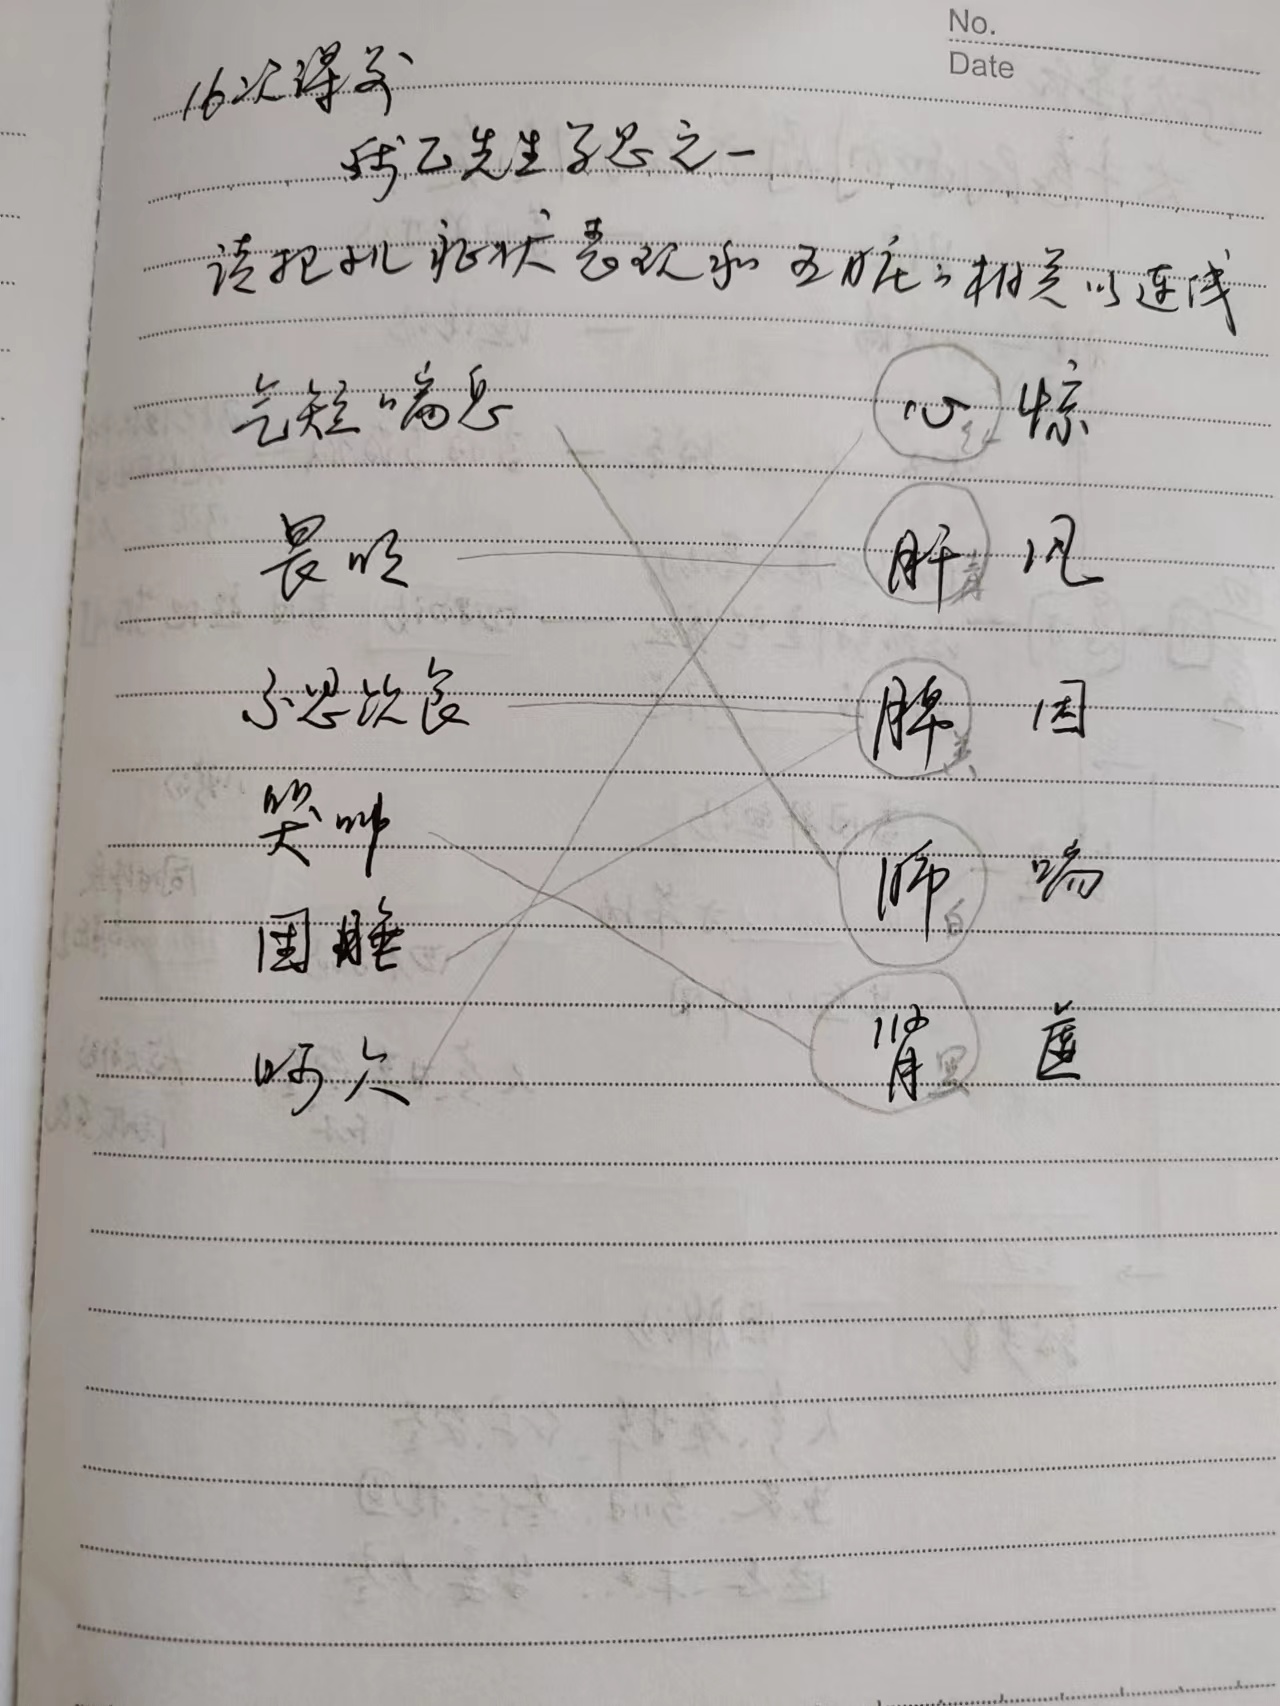 No.
Date
16次课前
钱乙先生学思之一
请把小儿症状表现和五脏的相关以连线
气短喘息 心 红 惊
畏明 肝 青 风
不思饮食 脾 黄 困
哭叫 肺 白 喘
困睡 肾 黑
呵欠